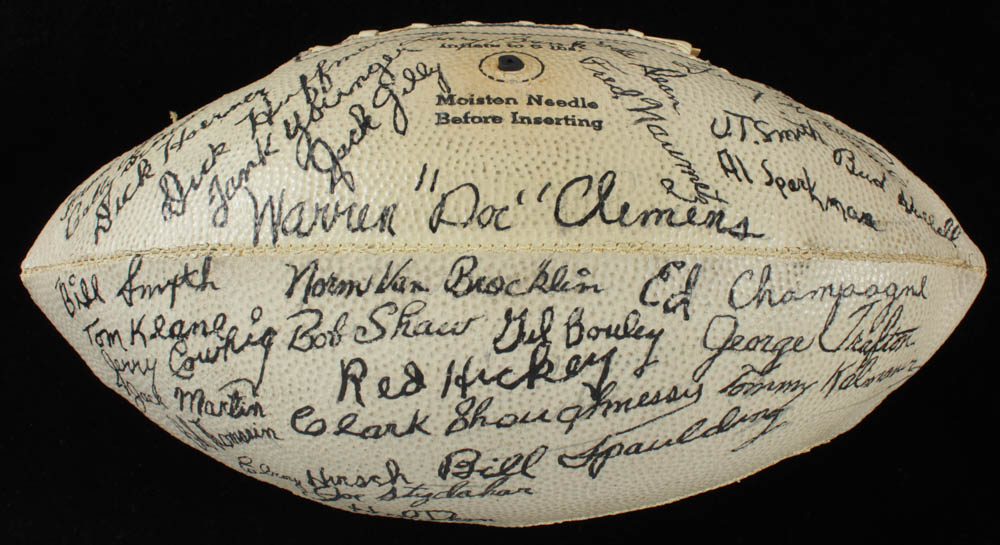 Inflate to
Moisten Needle
Before Inserting
Dick Hoerner
Dick Huffman
Tank Younger
Jack Zilly
Fred Naumetz
U.T. Smith
Bud
Al Sparkman
Warren "Doc" Clemens
Bill Smyth
Norm Van Brocklin
Ed Champagne
Tom Keane
Jerry Cowhig
Bob Shaw
Gil Bouley
George Trafton
Red Hickey
Tommy Kalmanir
Jack Martin
Clark Shaughnessy
Bill Spaulding
Elroy Hirsch
Joe Stydahar